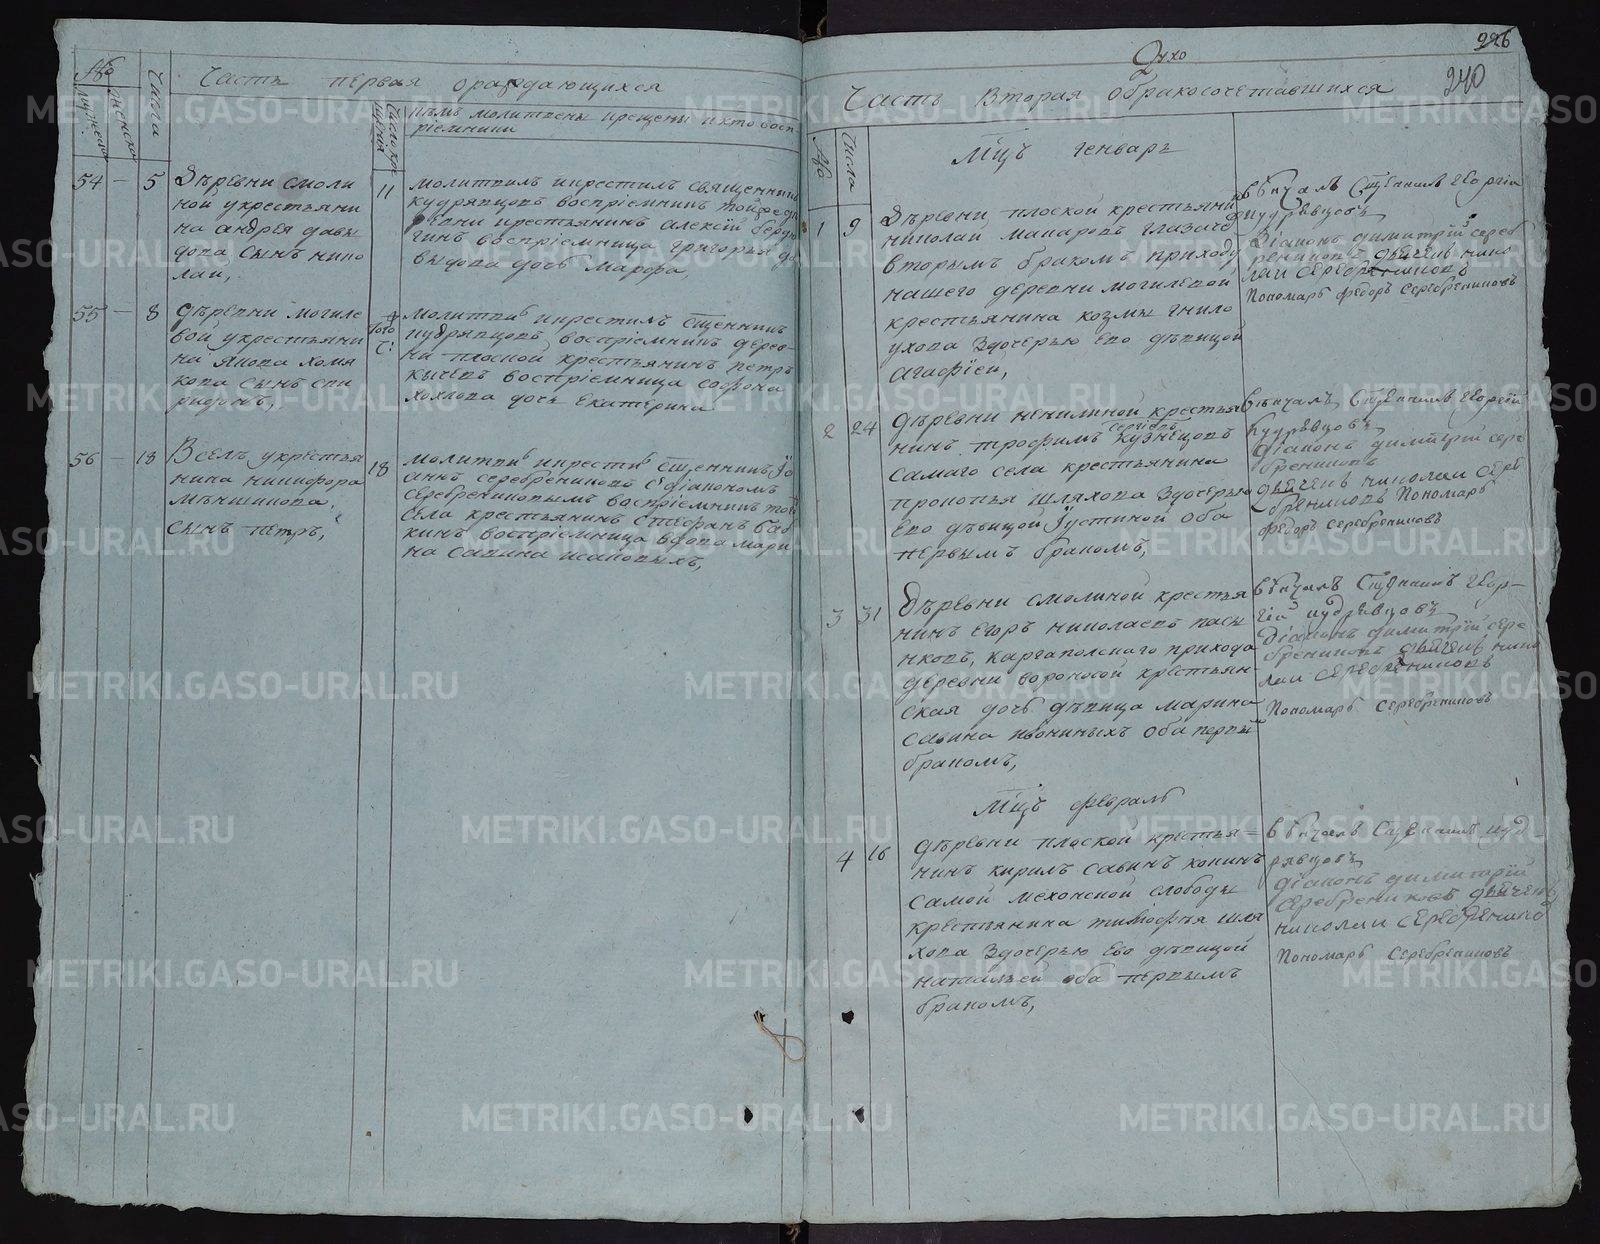 Часть первая ораждающихся
№
мужеска
женска
Числа
Число крещения
кѣмъ молитвены крещены и кто восп
ріемники
54 — 5
Дѣревни смоли
ной укрестьяни
на андрея давы
дова, сынъ нико
лай,
11
молитвилъ икрестилъ священникъ
кудрявцовъ воспріемникъ той же де
ревни крестьянинъ алексѣй
воспріемница григорья да
выдова дочь марфа,
55 — 8
дѣревни могиле
вой укрестьяни
на якова хомя
кова сынъ спи
ридонъ,
того
ч:
молитвив икрестилъ Сщенникъ
кудрявцовъ воспріемникъ дерев-
ни плоской крестьянинъ петръ
кычевъ воспріемница софона
хохлова дочь екатерина
56 — 18
Вселѣ укрестья
нина никифора
мѣншикова,
сынъ петръ,
18
молитвив икрестив Сщенникъ Іо
аннъ серебрениковъ сдіакономъ
серебрениковымъ воспріемникъ того
села крестьянинъ стефанъ баб
кинъ воспріемница вдова мари
на савина исаковыхъ,
226
240
Часть Вторая обракосочетавшихся
№
Числа
Мцъ генварь
1 9
Дѣревни плоской крестьянин
николай макаровъ глазачев
вторымъ бракомъ приходу
нашего деревни могилевой
крестьянина козмы гнило
ухова здочерью его дѣвицой
агафіеи,
вѣнчалъ Сщенникъ георгіи
кудрявцовъ
Діаконъ димитрій сереб
рениковъ дьячекъ нико
лаи серебрениковъ
Пономарь федоръ Серебрениковъ
2 24
дѣревни ненилиной крестья
нинъ трофимъ сергіевъ кузнецовъ
самаго села крестьянина
прокопья шляхова здочерью
его дѣвицой Іустиной оба
первымъ бракомъ,
вѣнчалъ Сщенникъ георгій
кудрявцовъ
діаконъ димитрій сере
брениковъ
дьячекъ николаи сере
брениковъ Пономарь
федоръ серебрениковъ
3 31
Дѣревни смолиной крестья
нинъ егоръ николаевъ пасы
нковъ, каргапольскаго прихода
деревни вороновой крестьян-
ская дочь дѣвица марина
савина ивониныхъ оба первы
бракомъ,
вѣнчалъ Сщенникъ геор-
гій кудрявцовъ
Діаконъ димитрій сере
брениковъ дьячекъ нико
лаи серебрениковъ
Пономарь серебрениковъ
Мцъ февраль
4 16
дѣревни плоской крестья-
нинъ кирилъ савинъ конинъ
самой мехонской слободы
крестьянина тимофѣя шля
хова здочерью его дѣвицой
натальей оба первымъ
бракомъ,
вѣнчалъ Сщенникъ куд-
рявцовъ
діаконъ димитрій
серебрениковъ дьячекъ
николаи серебрениковъ
Пономарь серебрениковъ
METRIKI.GASO-URAL.RU